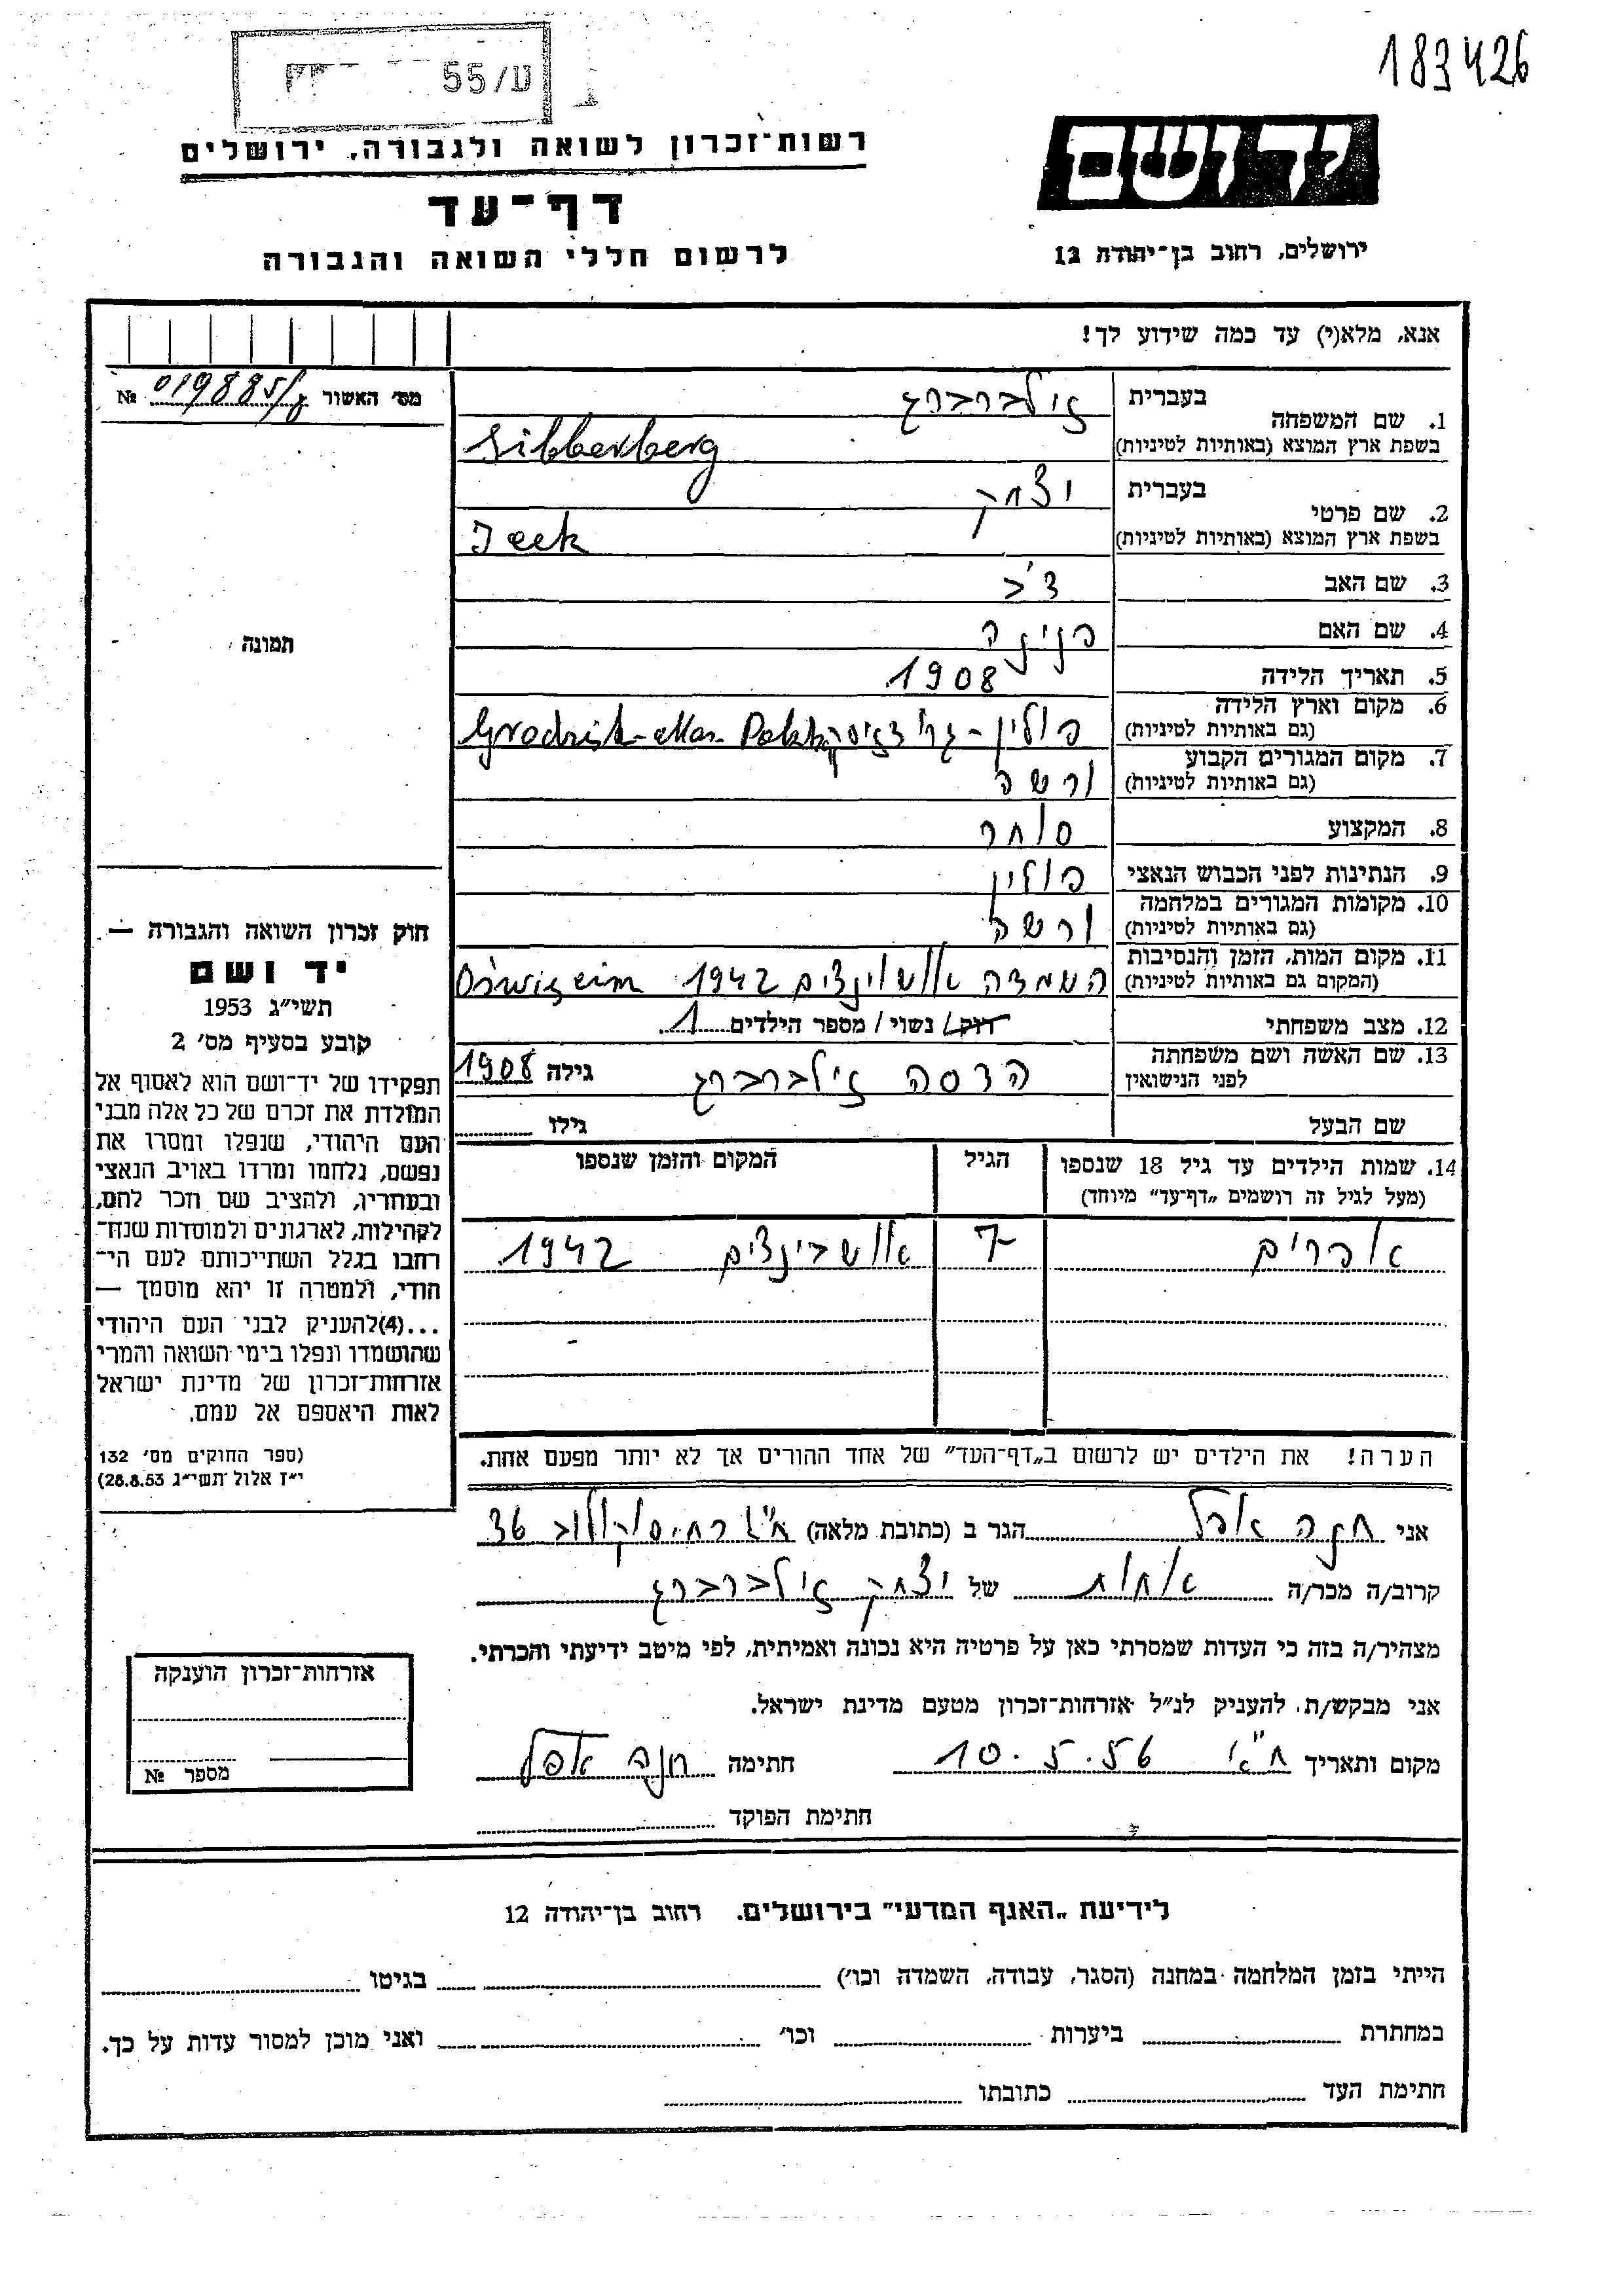 183426
ע/55
רשות־זכרון לשואה ולגבורה, ירושלים
יד ושם
דף־עד
ירושלים, רחוב בן־יהודה 12
לרשום חללי השואה והגבורה
אנא, מלא(י) עד כמה שידוע לך!
מס' האשור № 019885/
1. שם המשפחה בעברית זילברברג
בשפת ארץ המוצא (באותיות לטיניות) Silberberg
2. שם פרטי בעברית יצחק
בשפת ארץ המוצא (באותיות לטיניות) Icek
3. שם האב
4. שם האם פנינה
תמונה
5. תאריך הלידה 1908
6. מקום וארץ הלידה (גם באותיות לטיניות) פולין - Grodzisk-Maz.
7. מקום המגורים הקבוע (גם באותיות לטיניות) ורשה
8. המקצוע סוחר
9. הנתינות לפני הכבוש הנאצי פולין
10. מקומות המגורים במלחמה (גם באותיות לטיניות) ורשה
11. מקום המות, הזמן והנסיבות (המקום גם באותיות לטיניות) השמדה 1942
12. מצב משפחתי רווק/ נשוי / מספר הילדים 1
13. שם האשה ושם משפחתה לפני הנישואין הדסה זילברברג גילה 1908
שם הבעל גילו
14. שמות הילדים עד גיל 18 שנספו הגיל המקום והזמן שנספו
(מעל לגיל זה רושמים "דף־עד" מיוחד)
אפרים 7 אושבינצים 1942
הערה! את הילדים יש לרשום ב"דף־העד" של אחד ההורים אך לא יותר מפעם אחת.
חוק זכרון השואה והגבורה —
יד ושם
תשי"ג 1953
קובע בסעיף מס' 2
תפקידו של יד־ושם הוא לאסוף אל
המולדת את זכרם של כל אלה מבני
העם היהודי, שנפלו ומסרו את
נפשם, נלחמו ומרדו באויב הנאצי
ובעוזריו, ולהציב שם וזכר להם,
לקהילות, לארגונים ולמוסדות שנח־
רחבו בגלל השתייכותם לעם הי־
הודי, ולמטרה זו יהא מוסמך —
...(4)להעניק לבני העם היהודי
שהושמדו ונפלו בימי השואה והמרי
אזרחות־זכרון של מדינת ישראל
לאות היאספם אל עמם.
(ספר החוקים מס' 132
י"ז אלול תשי"ג 28.8.53)
אני חנה אפל הגר ב (כתובת מלאה) ת"א רח' סוקולוב 36
קרוב/ה מכר/ה אחות של יצחק זילברברג
מצהיר/ה בזה כי העדות שמסרתי כאן על פרטיה היא נכונה ואמיתית, לפי מיטב ידיעתי והכרתי.
אני מבקש/ת להעניק לנ"ל אזרחות־זכרון מטעם מדינת ישראל.
מקום ותאריך ת"א 10.5.56 חתימה חנה אפל
חתימת הפוקד
אזרחות־זכרון הוענקה
מספר №
לידיעת "האגף המדעי" בירושלים. רחוב בן־יהודה 12
הייתי בזמן המלחמה במחנה (הסגר, עבודה, השמדה וכו') בגיטו
במחתרת ביערות וכו' ואני מוכן למסור עדות על כך.
חתימת העד כתובתו